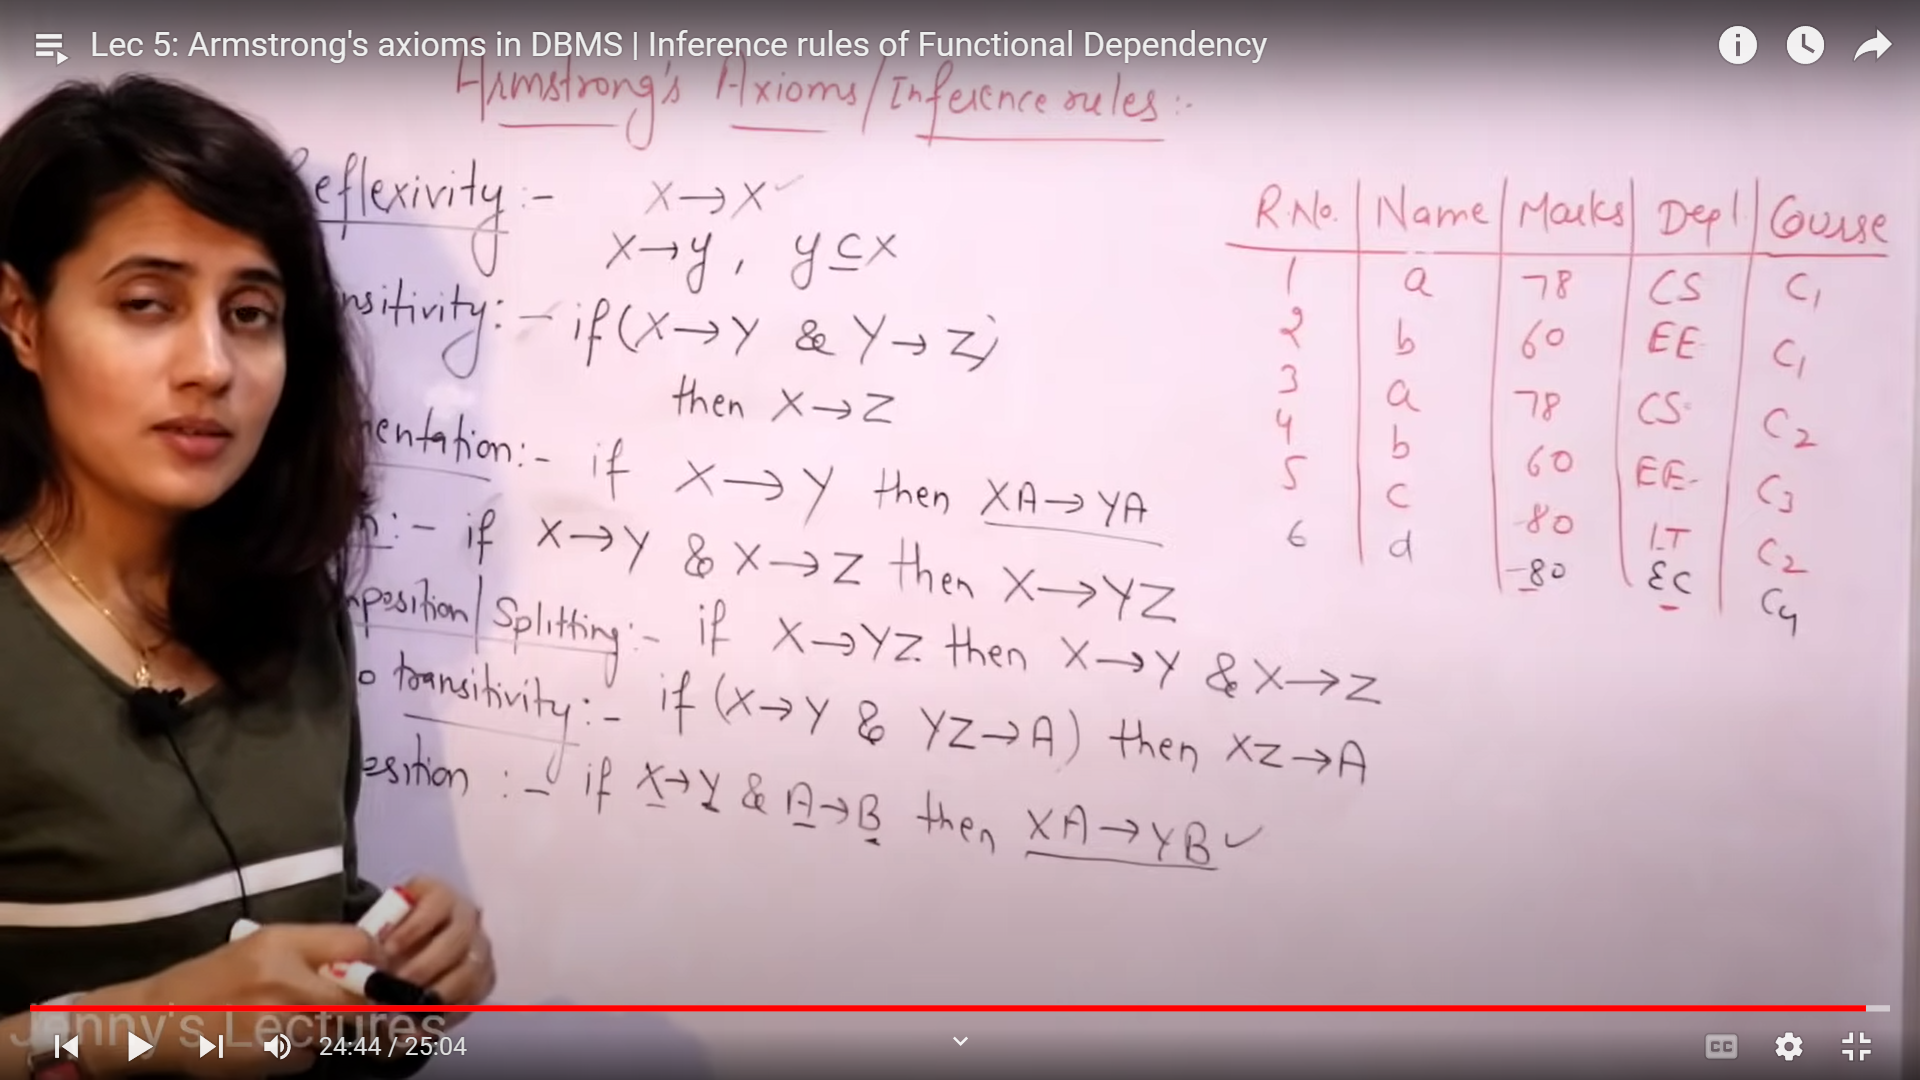 Lec 5: Armstrong's axioms in DBMS | Inference rules of Functional Dependency
Armstrong's Axioms/Inference rules :-
eflexivity :- X→X ✓
X→y , y⊆x
nsitivity :- if (X→Y & Y→Z)
then X→Z
entation :- if X→Y then XA→YA
n :- if X→Y & X→Z then X→YZ
position/Splitting :- if X→YZ then X→Y & X→Z
o transitivity :- if (X→Y & YZ→A) then XZ→A
esition :- if X→Y & A→B then XA→YB ✓
R.No. Name Marks Dept Course
1 a 78 CS C1
2 b 60 EE C1
3 a 78 CS C2
4 b 60 EE C3
5 c 80 I.T C2
6 d 80 EC C4
Jenny's Lectures
24:44 / 25:04
CC